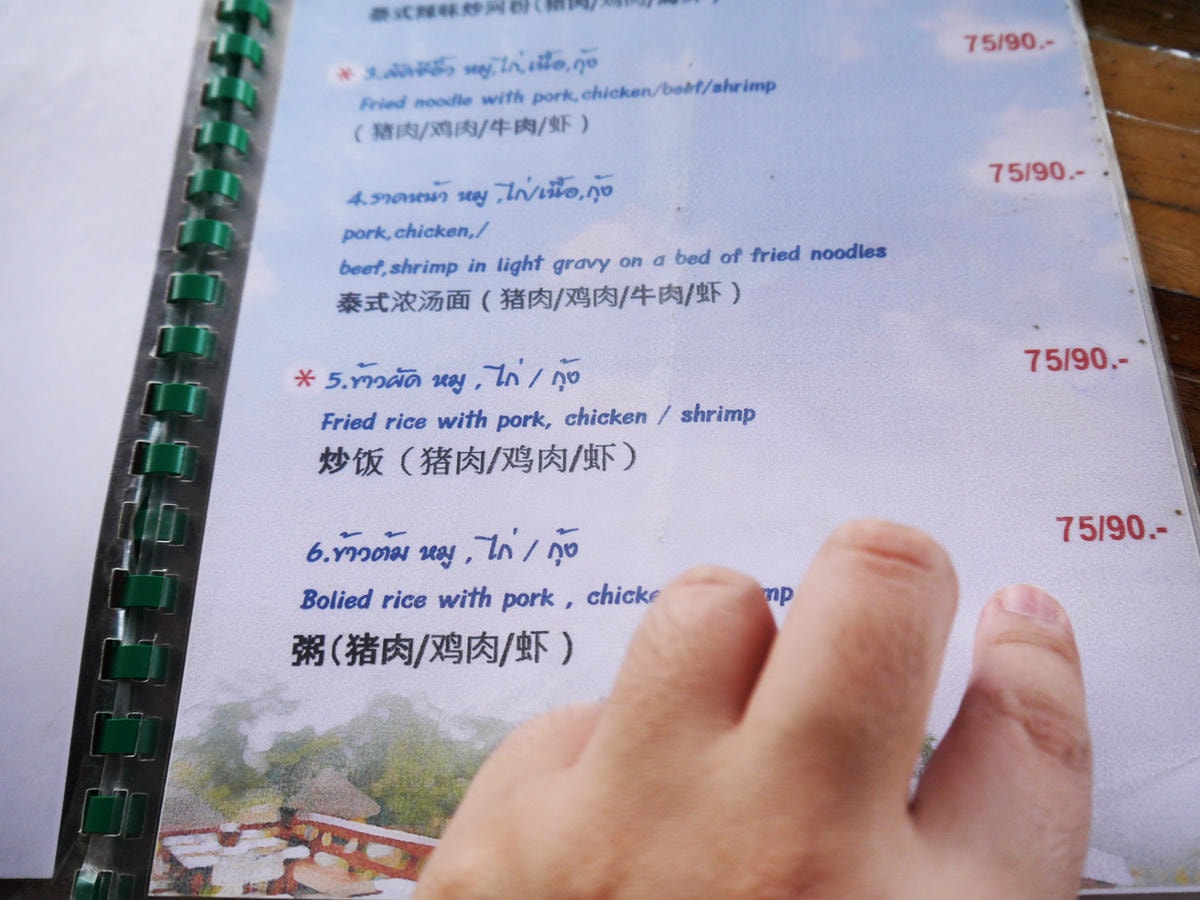 泰式辣味炒河粉(猪肉/鸡肉/海鲜)
75/90.-
* 3.ผัดซีอิ๊ว หมู,ไก่,เนื้อ,กุ้ง
Fried noodle with pork,chicken/beef/shrimp
( 猪肉/鸡肉/牛肉/虾 )
75/90.-
4.ราดหน้า หมู ,ไก่/เนื้อ,กุ้ง
pork,chicken,/
beef,shrimp in light gravy on a bed of fried noodles
泰式浓汤面 ( 猪肉/鸡肉/牛肉/虾 )
75/90.-
* 5.ข้าวผัด หมู ,ไก่ / กุ้ง
Fried rice with pork, chicken / shrimp
炒饭（猪肉/鸡肉/虾）
75/90.-
6.ข้าวต้ม หมู ,ไก่ / กุ้ง
Bolied rice with pork ,
粥(猪肉/鸡肉/虾 )